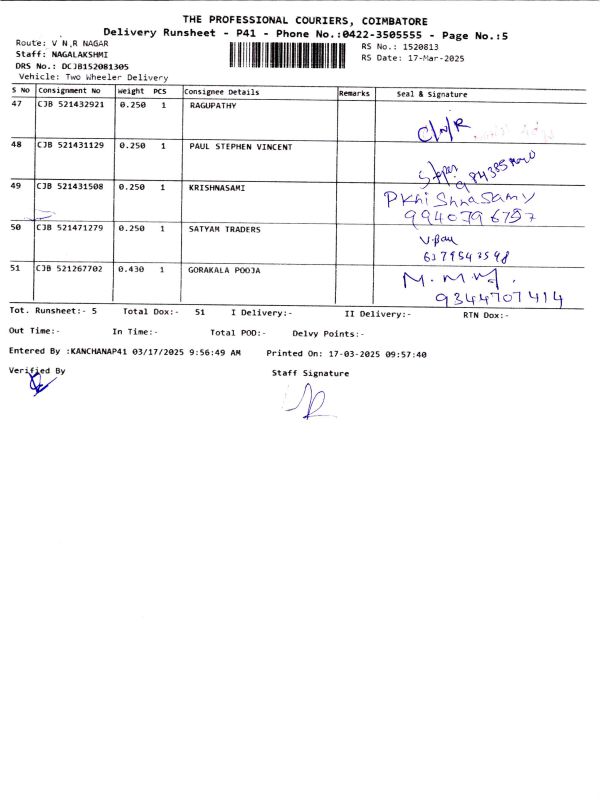 THE PROFESSIONAL COURIERS, COIMBATORE
Delivery Runsheet - P41 - Phone No.:0422-3505555 - Page No.:5
Route: V N ,R NAGAR
RS No.: 1520813
Staff: NAGALAKSHMI
RS Date: 17-Mar-2025
DRS No.: DCJB152081305
Vehicle: Two Wheeler Delivery
S No Consignment No Weight PCS Consignee Details Remarks Seal & Signature
47 CJB 521432921 0.250 1 RAGUPATHY
C/N/R
48 CJB 521431129 0.250 1 PAUL STEPHEN VINCENT
49 CJB 521431508 0.250 1 KRISHNASAMI
PKhiShnaSamy
9940796757
50 CJB 521471279 0.250 1 SATYAM TRADERS
51 CJB 521267702 0.430 1 GORAKALA POOJA
9344707414
Tot. Runsheet:- 5 Total Dox:- 51 I Delivery:- II Delivery:- RTN Dox:-
Out Time:- In Time:- Total POD:- Delvy Points:-
Entered By :KANCHANAP41 03/17/2025 9:56:49 AM Printed On: 17-03-2025 09:57:40
Verified By
Staff Signature